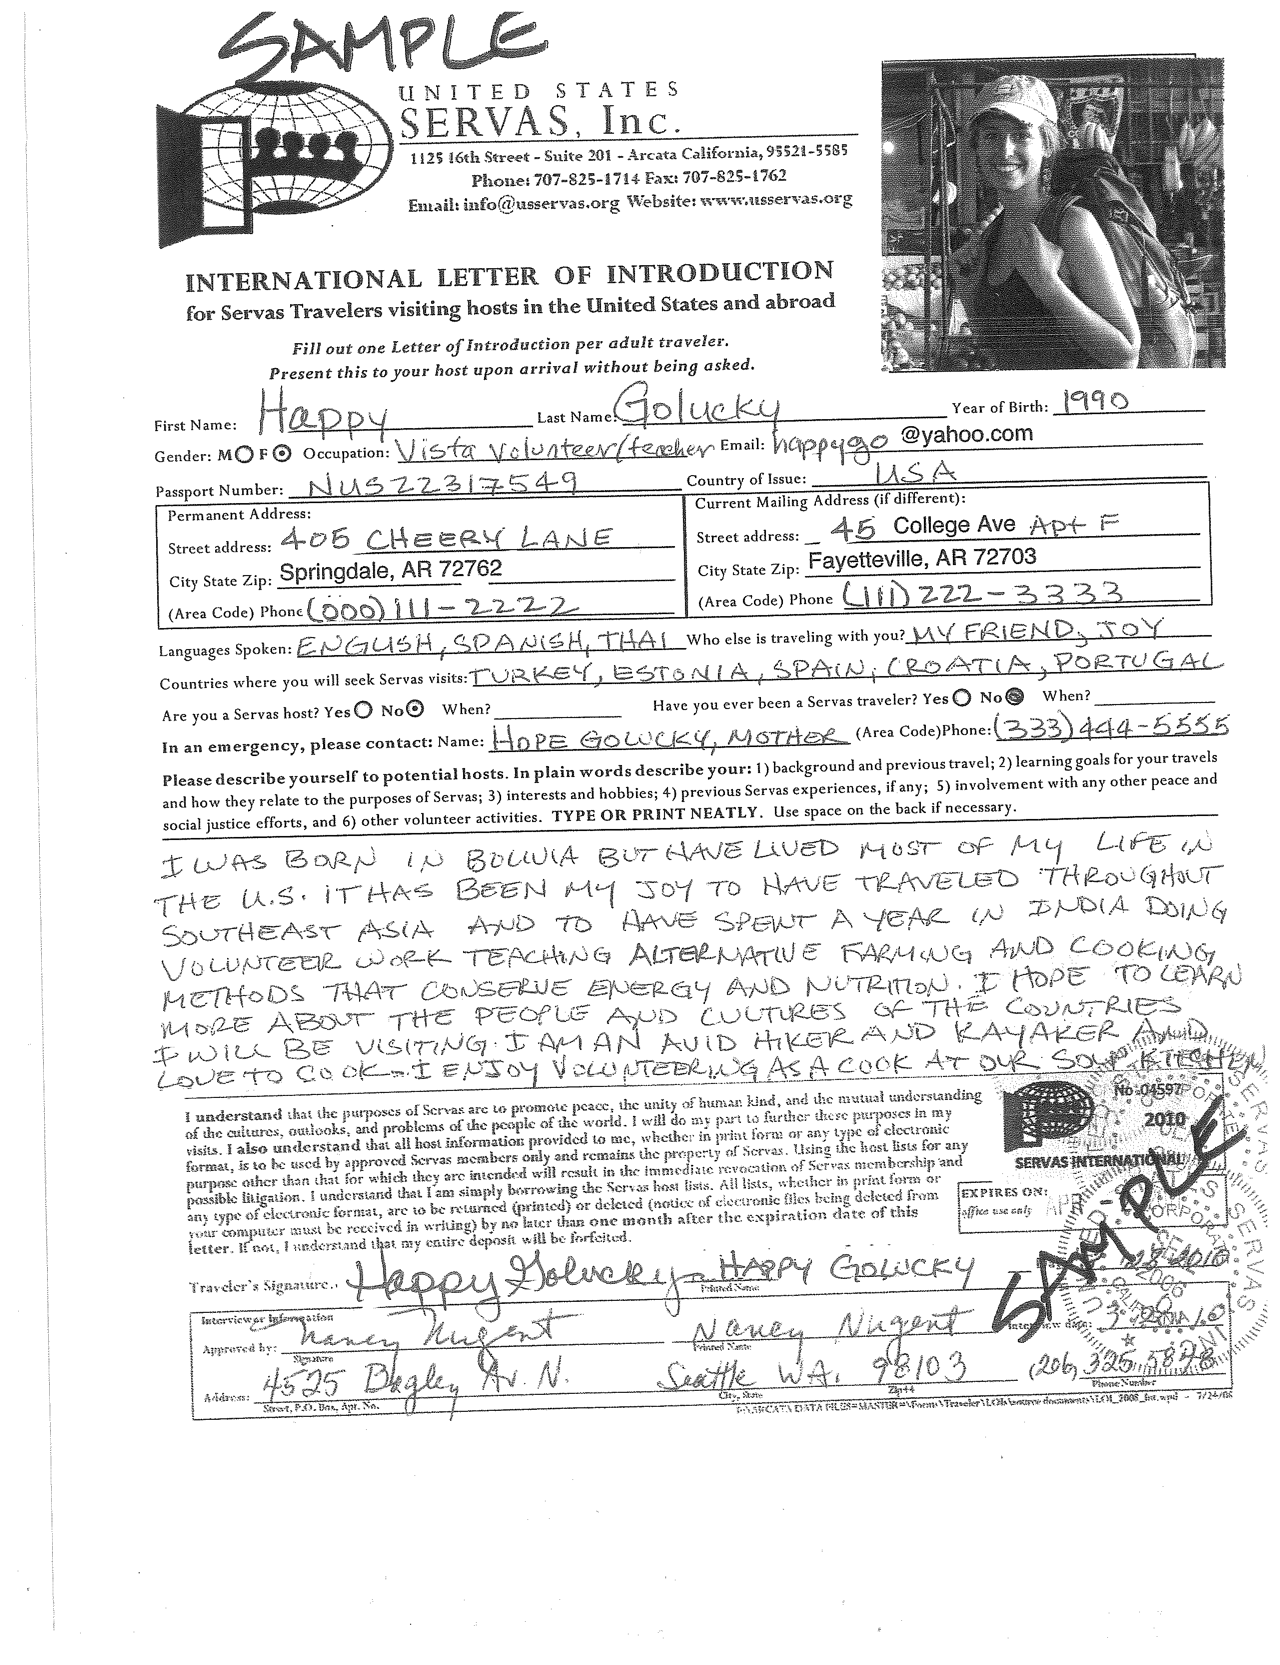 SAMPLE
UNITED STATES
SERVAS, Inc.
1125 16th Street - Suite 201 - Arcata California, 95521-5585
Phone: 707-825-1714 Fax: 707-825-1762
Email: info@usservas.org Website: www.usservas.org
INTERNATIONAL LETTER OF INTRODUCTION
for Servas Travelers visiting hosts in the United States and abroad
Fill out one Letter of Introduction per adult traveler.
Present this to your host upon arrival without being asked.
First Name: Happy Last Name: Golucky Year of Birth: 1990
Gender: M F Occupation: Vista Volunteer/teacher Email: happygo @yahoo.com
Passport Number: NUS22317549 Country of Issue: USA
Permanent Address: Current Mailing Address (if different):
Street address: 405 CHEERY LANE Street address: 45 College Ave Apt F
City State Zip: Springdale, AR 72762 City State Zip: Fayetteville, AR 72703
(Area Code) Phone (000) 111-2222 (Area Code) Phone (111) 222-3333
Languages Spoken: ENGLISH, SPANISH, THAI Who else is traveling with you? MY FRIEND, JOY
Countries where you will seek Servas visits: TURKEY, ESTONIA, SPAIN, CROATIA, PORTUGAL
Are you a Servas host? Yes No When? Have you ever been a Servas traveler? Yes No When?
In an emergency, please contact: Name: HOPE GOLUCKY, MOTHER (Area Code)Phone: (333) 444-5555
Please describe yourself to potential hosts. In plain words describe your: 1) background and previous travel; 2) learning goals for your travels
and how they relate to the purposes of Servas; 3) interests and hobbies; 4) previous Servas experiences, if any; 5) involvement with any other peace and
social justice efforts, and 6) other volunteer activities. TYPE OR PRINT NEATLY. Use space on the back if necessary.
I WAS BORN IN BOLIVIA BUT HAVE LIVED MOST OF MY LIFE IN
THE U.S. IT HAS BEEN MY JOY TO HAVE TRAVELED THROUGHOUT
SOUTHEAST ASIA AND TO HAVE SPENT A YEAR IN INDIA DOING
VOLUNTEER WORK TEACHING ALTERNATIVE FARMING AND COOKING
METHODS THAT CONSERVE ENERGY AND NUTRITION. I HOPE TO LEARN
MORE ABOUT THE PEOPLE AND CULTURES OF THE COUNTRIES
I WILL BE VISITING. I AM AN AVID HIKER AND KAYAKER AND
LOVE TO COOK. I ENJOY VOLUNTEERING AS A COOK AT OUR SOUP KITCHEN
I understand that the purposes of Servas are to promote peace, the unity of human kind, and the mutual understanding
of the cultures, outlooks, and problems of the people of the world. I will do my part to further these purposes in my
visits. I also understand that all host information provided to me, whether in print form or any type of electronic
format, is to be used by approved Servas members only and remains the property of Servas. Using the host lists for any
purpose other than that for which they are intended will result in the immediate revocation of Servas membership and
possible litigation. I understand that I am simply borrowing the Servas host lists. All lists, whether in print form or
any type of electronic format, are to be returned (printed) or deleted (notice of electronic files being deleted from
your computer must be received in writing) by no later than one month after the expiration date of this
letter. If not, I understand that my entire deposit will be forfeited.
No 04597
2010
SERVAS INTERNATIONAL
EXPIRES ON:
office use only APR 28 2010
SAMPLE
Traveler's Signature: Happy Golucky HAPPY GOLUCKY
Printed Name
Interviewer Information
Approved by: Nancy Nugent Nancy Nugent Interview date:
Signature Printed Name
Address: 4525 Bagley Av. N. Seattle WA. 98103 (206) 325 5828
Street, P.O. Box, Apt. No. City, State Zip+4 Phone Number